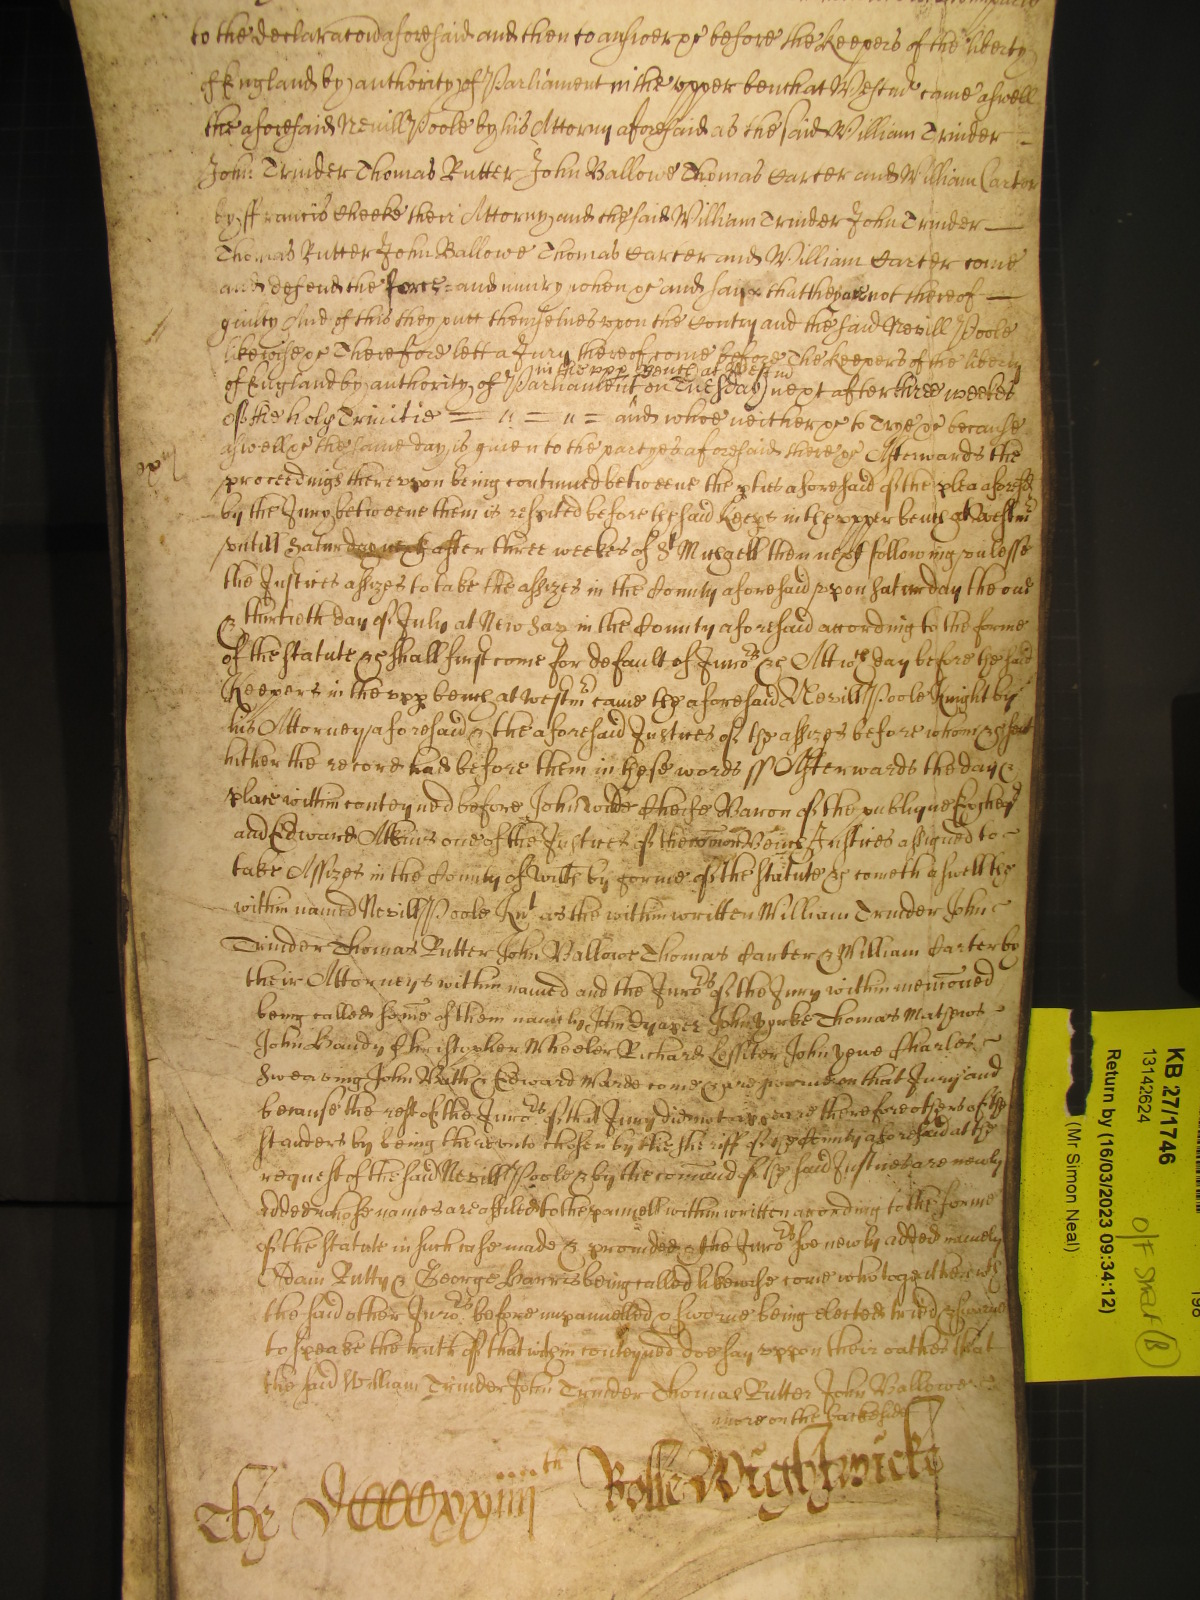 to the declaracon aforesaid and then to answer &c before the Keepers of the liberty
of England by authority of Parliament in the upper bench at Westmr came aswell
the aforesaid Nevill Poole by his Attorny aforesaid as the said William Trinder
John Trinder Thomas Rutter John Ballowe Thomas Carter and William Carter
by ffrancis Cheeke their Attorny and the said William Trinder John Trinder
Thomas Rutter John Ballowe Thomas Carter and William Carter come
and defend the force and iniury when &c and say that they are not thereof
guilty And of this they putt themselves upon the Contry and the said Nevill Poole
likewise &c Therefore lett a Jury thereof come before The Keepers of the liberty
in the upp bench at Westmr
of England by authority of Parliament on Tuesday next after three weekes
of the holy Trinitie and whoe neither &c to Trye &c because
aswell &c the same day is given to the partyes aforesaid there &c Afterwards the
proceedings thereupon being continued betweene the pties aforesaid of the plea aforesd
by the Jury betweene them is respited before the said Keeps in the upper bench at Westmr
untill Saturday next after three weekes of St Michaell then next following unlesse
the Justices assizes to take the assizes in the County aforesaid upon Saturday the one
& thirtieth day of July at New Sar in the County aforesaid according to the forme
of the statute &c shall first come for default of Juros &c Att wch day before the said
Keepers in the upp bench at Westmr came the aforesaid Nevill Poole Knight by
his Attorney aforesaid & the aforesaid Justices of the assizes before whom &c sent
hither the record had before them in these words ss Afterwards the day &
place within conteyned before John Wilde Cheife Baron of the publique Excheqr
and Edward Atkins one of the Justices of the common Bench Justices assigned to
take Assizes in the County of Wilts by forme of the statute &c cometh aswell the
within named Nevill Poole Knt as the within written William Trinder John
Trinder Thomas Rutter John Ballowe Thomas Carter & William Carter by
their Attorneys within named and the Juros of the Jury within menconed
being called some of them namely John John Thomas Mathewes
John Bandy Christopher Wheeler Richard Lessiter John Charles
John & Edward Warde come & are sworne on that Jury and
because the rest of the Juros of that Jury did not appeare therefore others of the
standers by being thereunto chosen by the sheriff of the County aforesaid at the
request of the said Nevill Poole & by the comand of the said Justices are newly
added whose names are affiled to the pannell within written according to the forme
of the statute in such case made & provided & the Juros soe newly added namely
Adam Rutty & George Harris being called likewise come who together wth
the said other Juros before impannelled & sworne being elected tried & sworne
to speake the truth of that within conteyned doe say uppon their oathes that
the said William Trinder John Trinder Thomas Rutter John Ballowe
more on the backside
The Rolle Wightwicke
KB 27/1746
13142624
Return by (16/03/2023 09:34:12)
(Mr Simon Neal)
O/F Small (B)